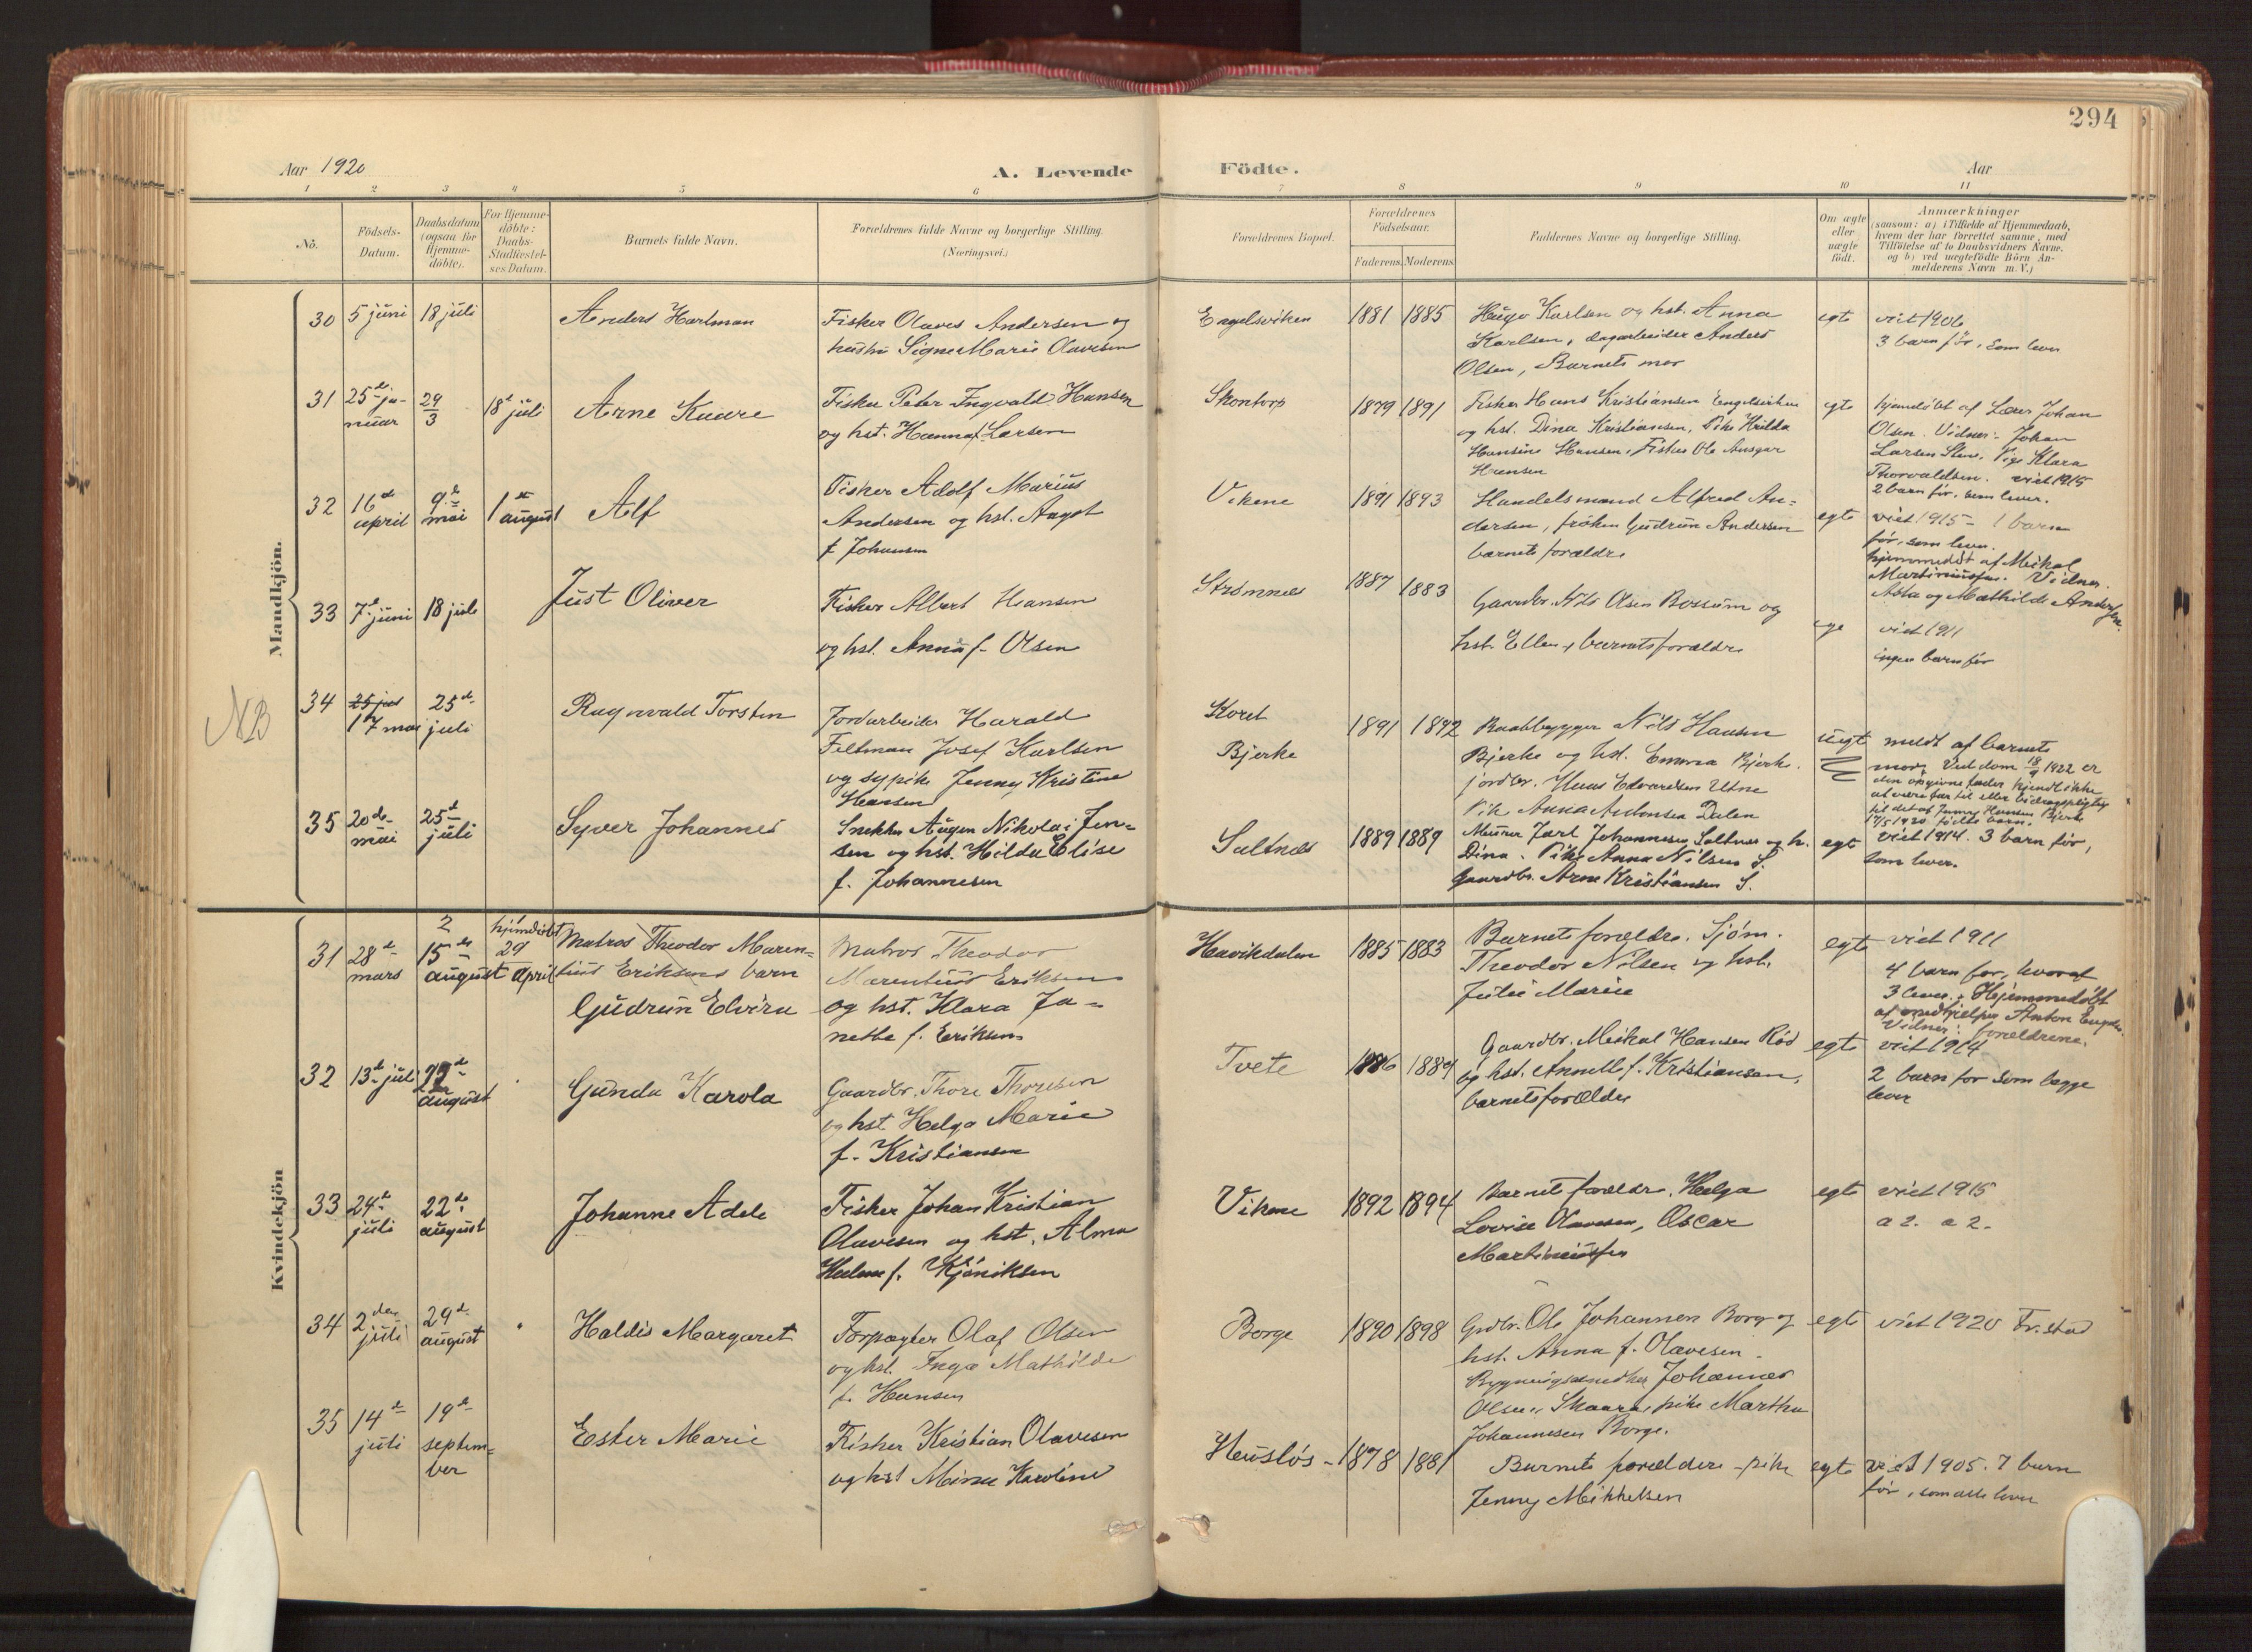 294
Aar 1920
A. Levende
Födte.
Aar
1 2 3 4 5 6 7 8 9 10 11
No.
Födsels-
Datum.
Daabsdatum
(ogsaa for
Hjemme-
döbte).
For Hjemme-
döbte:
Daabs-
Stadfæstel-
ses Datum.
Barnets fulde Navn.
Forældrenes fulde Navne og borgerlige Stilling.
(Næringsvei.)
Forældrenes Bopæl.
Forældrenes
Födselsaar.
Faderens. Moderens.
Faddernes Navne og borgerlige Stilling.
Om ægte
eller
uægte
födt.
Anmærkninger
(saasom: a) i Tilfælde af Hjemmedaab,
hvem der har forrettet samme, med
Tilföielse af to Daabsvidners Navne.
og b) ved uægtefödte Börn An-
melderens Navn m. V.)
Mandkjön.
30 5 juni 18 juli Anders Hartman
Fisker Olaves Andersen og
hustru Signe Marie Olavesen
Engelsviken 1881 1885
Hugo Karlsen og hst. Anna
Karlsen, dagarbeider Anders
Olsen, Barnets mor
egte
viet 1906
3 barn før, som lever
31 25de ja-
nuar
29
3
18de juli
Arne Kaare
Fisker Peter Ingvald Hansen
og hst. Hanna f. Larsen
Skontorp 1879 1891
Fisker Hans Kristiansen Engelsviken
og hst. Dina Kristiansen, Pike Hilda
Hansine Hansen, Fisker Ole Ansgar
Hansen
egte
hjemdöbt af Lærer Johan
Olsen. Vidner: Johan
Larsen Stene, Pige Klara
Thorvaldsen. viet 1915
2 barn før, som lever.
32 16de
april
9de
mai
1ste
august
Alf
Fisker Adolf Marius
Andersen og hst. Aagot
f. Johansen
Vikene 1891 1893
Handelsmand Alfred An-
dersen, frøken Gudrun Andersen
barnets forældre
egte
viet 1915 - 1 barn
før, som lever.
hjemmedøbt af Meikal
Martiniussen. Vidner
Asta og Mathilde Andersen.
33 7de juni 18 juli
Just Oliver
Fisker Albert Hansen
og hst. Anna f. Olsen
Strømnes 1887 1883
Gaardbr. Nils Olsen Bossum og
hst. Ellen, barnets forældre
viet 1911
ingen barn før
NB
34 25 juni
17 mai
25de
juli
Ragnvald Torsten
Jordarbeider Harald
Feltman Josef Karlsen
og sypike Jenny Kristine
Hansen
Bjerke 1891 1892
Baatbygger Nils Hansen
Bjerke og hst. Emma Bjerke.
jordbr. Hans Edvardsen Utne
Pike Anna Antonsen Dalen
uegt
meldt af barnets
mor. Ved dom 18/9 1922 er
den opgivne fader kjendt ikke
at være far til eller bidragspligtig
til det af Jenny Hansen Bjerke
17/5 1920 fødte barn.
35 20de
mai
25de
juli
Syver Johannes
Snekker Augen Nikolai Jen-
sen og hst. Hilda Elise
f. Johannesen
Saltnes 1889 1889
Murer Jarl Johannesen Saltnes og h.
Dina. Pike Anna Nilsen S.
Gaardbr. Arne Kristiansen S.
egt
viet 1914. 3 barn før,
som lever.
Kvindekjön
31 28de
mars
15de
august
hjemdøbt
29
april
Matros Theodor Maren-
tius Eriksens barn
Gudrun Elvira
Matros Theodor
Marentius Eriksen
og hst. Klara Ja-
nette f. Eriksen
Haavikdalen 1885 1883
Barnets forældre. Sjøm.
Theodor Nilsen og hst.
Julie Marie
egte
viet 1911
4 barn før, hvoraf
3 lever. Hjemmedøbt
Vidner: forældrene.
32 13de juli
august
Gunda Karola
Gaardbr. Thore Thoresen
og hst Helga Marie
f. Kristiansen
Tvete 1886 1889
Gaardbr. Meikal Hansen Rød
og hst. Annette f. Kristiansen,
barnets forældre
egte
viet 1914
2 barn før som begge
lever
33 24de
juli
22de
august
Johanne Adele
Fisker Johan Kristian
Olavesen og hst. Alma
Helene f. Kjøniksen
Vikene 1892 1894
Barnets forældre, Helga
Lovise Olavesen, Oscar
Martiniussen
egte
viet 1915
a 2. a 2.
34 2den
juli
29de
august
Haldis Margaret
Forpagter Olaf Olsen
og hst. Inga Mathilde
f. Hansen
Borge 1890 1898
Grdbr. Ole Johannesen Borge og
hst. Anna f. Olavesen.
Bygningssnedker Johannes
Olsen Skaara, pike Martha
Johannesen Borge.
egte
viet 1920 Fr.stad
35 14de
juli
19de
septem-
ber
Ester Marie
Fisker Kristian Olavesen
og hst Maina Karoline
Husløs 1878 1881
Barnets forældere - pike
Jenny Mikkelsen
egte
viet 1905. 7 barn
før, som alle lever